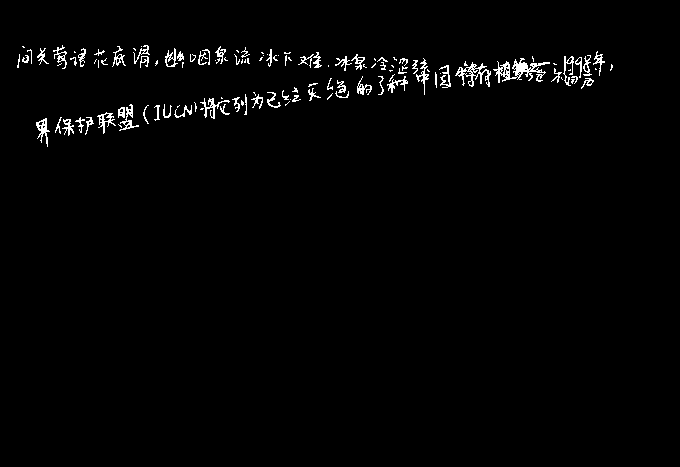 间关莺语花底滑,幽咽泉流冰下难.冰泉冷涩弦
1998年,
界保护联盟(IUCN)将它列为已经灭绝的了种中国特有植